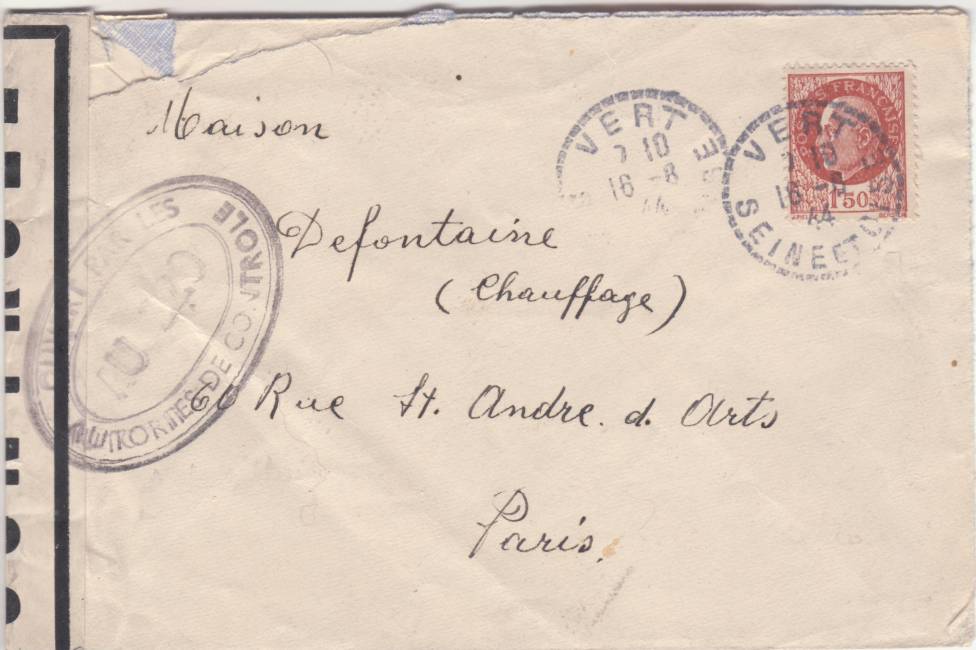 Maison
Defontaine
(Chauffage)
60 Rue St. Andre. d. Arts
Paris.
VERT
7 10
16 -8
44
VERT
7 10
16 -8
44
SEINE ET OISE
POSTES FRANÇAISES
1F50
OUVERT PAR LES
AUTORITÉS DE CONTROLE